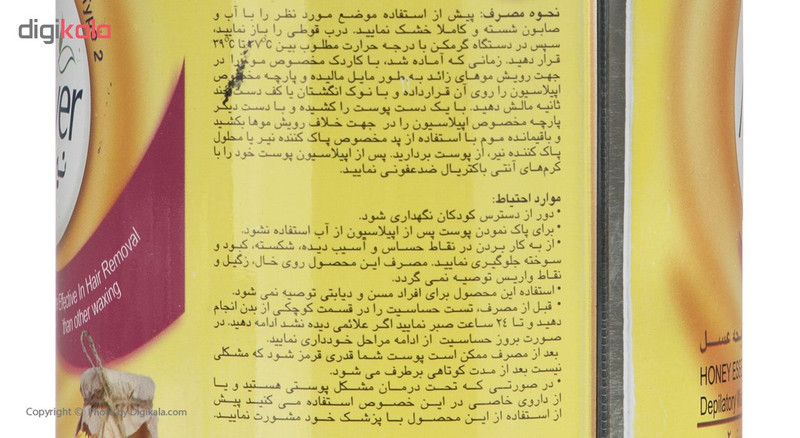 digikala
نحوه مصرف: پیش از استفاده موضع مورد نظر را با آب و
صابون شسته و کاملا خشک نمایید. درب قوطی را باز نمایید،
سپس در دستگاه گرمکن با درجه حرارت مطلوب بین ۳۷°C تا ۳۹°C
قرار دهید. زمانی که آماده شد، با کاردک مخصوص موم را در
جهت رویش موهای زائد به طور مایل مالیده و پارچه مخصوص
اپیلاسیون را روی آن قرار داده و با نوک انگشتان یا کف دست چند
ثانیه مالش دهید. با یک دست پوست را کشیده و با دست دیگر
پارچه مخصوص اپیلاسیون را در جهت خلاف رویش موها بکشید
و باقیمانده موم با استفاده از پد مخصوص پاک کننده نیر یا محلول
پاک کننده نیر، از پوست بردارید. پس از اپیلاسیون پوست خود را با
کرم‌های آنتی باکتریال ضدعفونی نمایید.
موارد احتیاط:
* دور از دسترس کودکان نگهداری شود.
* برای پاک نمودن پوست پس از اپیلاسیون از آب استفاده نشود.
* از به کار بردن در نقاط حساس و آسیب دیده، شکسته، کبود و
سوخته جلوگیری نمایید. مصرف این محصول روی خال، زگیل و
نقاط واریس توصیه نمی گردد.
* استفاده این محصول برای افراد مسن و دیابتی توصیه نمی شود.
* قبل از مصرف، تست حساسیت را در قسمت کوچکی از بدن انجام
دهید و تا ۲۴ ساعت صبر نمایید اگر علائمی دیده نشد ادامه دهید. در
صورت بروز حساسیت از ادامه مراحل خودداری نمایید.
بعد از مصرف ممکن است پوست شما قدری قرمز شود که مشکلی
نیست بعد از مدت کوتاهی برطرف می شود.
* در صورتی که تحت درمان مشکل پوستی هستید و یا
از داروی خاصی در این خصوص استفاده می کنید پیش
از استفاده از این محصول با پزشک خود مشورت نمایید.
2
Effective In Hair Removal
than other waxing
عسل
HONEY
Depilatory
Copyright © Photo by Digikala.com